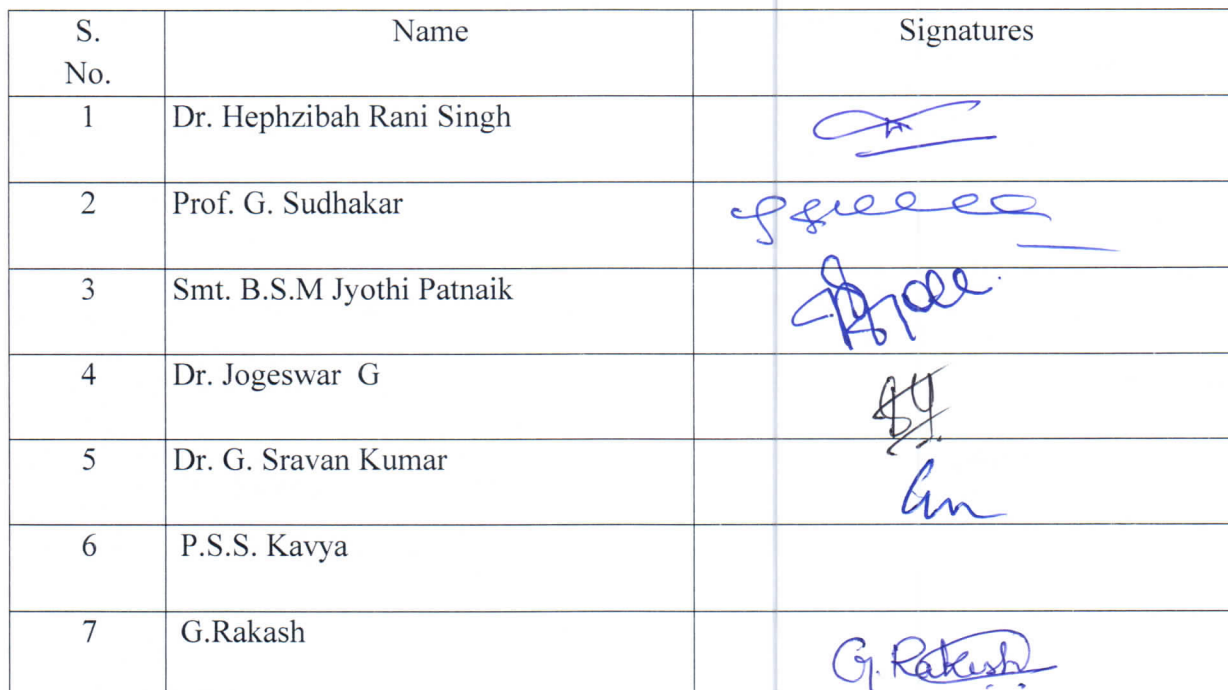 S. No. Name Signatures
1 Dr. Hephzibah Rani Singh
2 Prof. G. Sudhakar
3 Smt. B.S.M Jyothi Patnaik
4 Dr. Jogeswar G
5 Dr. G. Sravan Kumar
6 P.S.S. Kavya
7 G.Rakash G. Rakesh